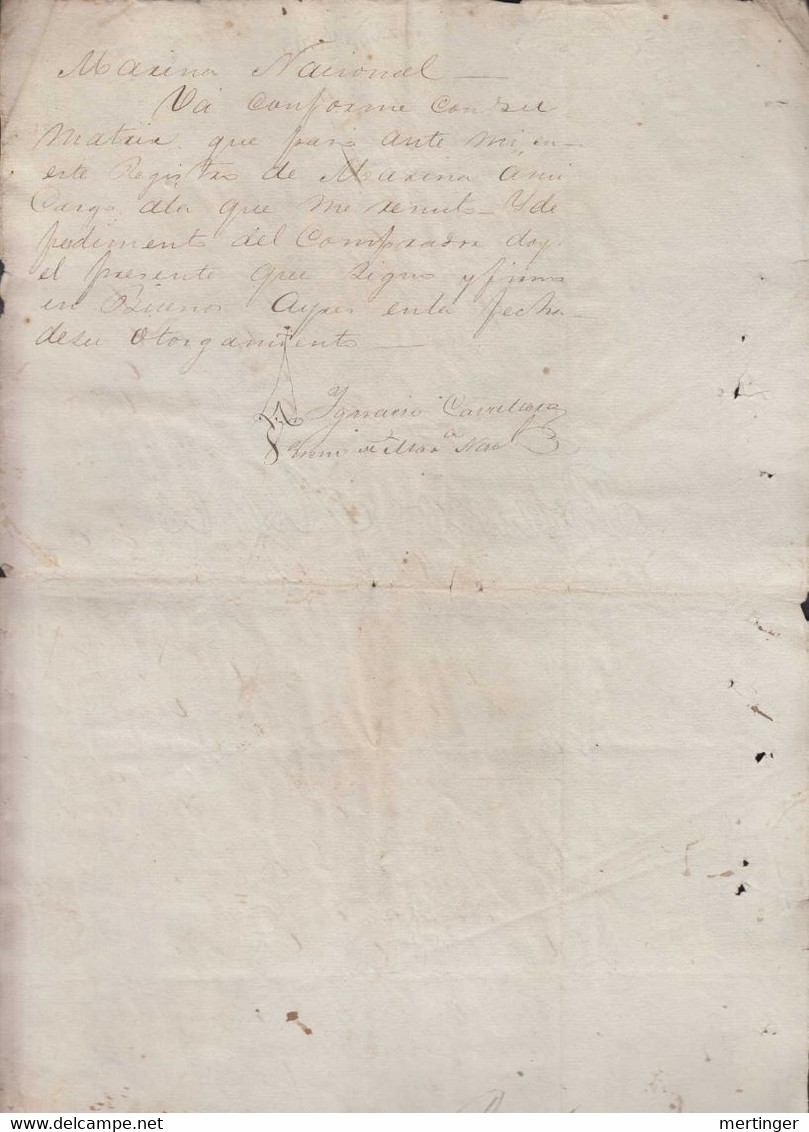 Marina Nacional
Vá Conforme con su
Matriz que paso ante mi, en
este Registro de Marina ámi
Cargo ala que me remito Y de
pedimento del Comprador doy
el presente que signo y firmo
en Buenos Ayres enla fecha
desu Otorgamiento
Ignacio
Nac
mertinger